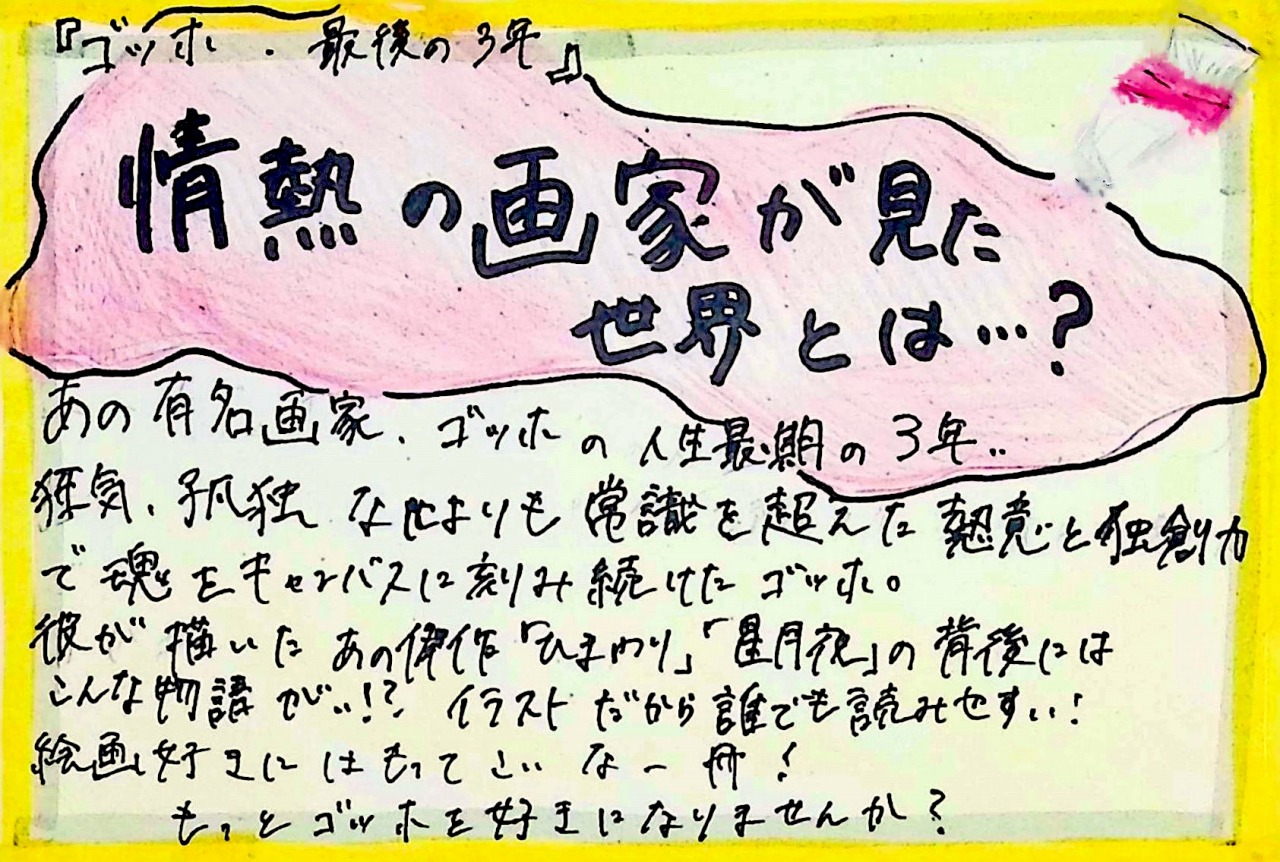 『ゴッホ・最後の3年』
情熱の画家が見た
世界とは…?
あの有名画家、ゴッホの人生最期の3年..
狂気、孤独なによりも常識を超えた熱意と独創力
で魂をキャンバスに刻み続けたゴッホ。
彼が描いたあの傑作「ひまわり」「星月夜」の背後には
こんな物語が..!? イラストだから誰でも読みやすい!
絵画好きにはもってこいな一冊!
もっとゴッホを好きになりませんか?